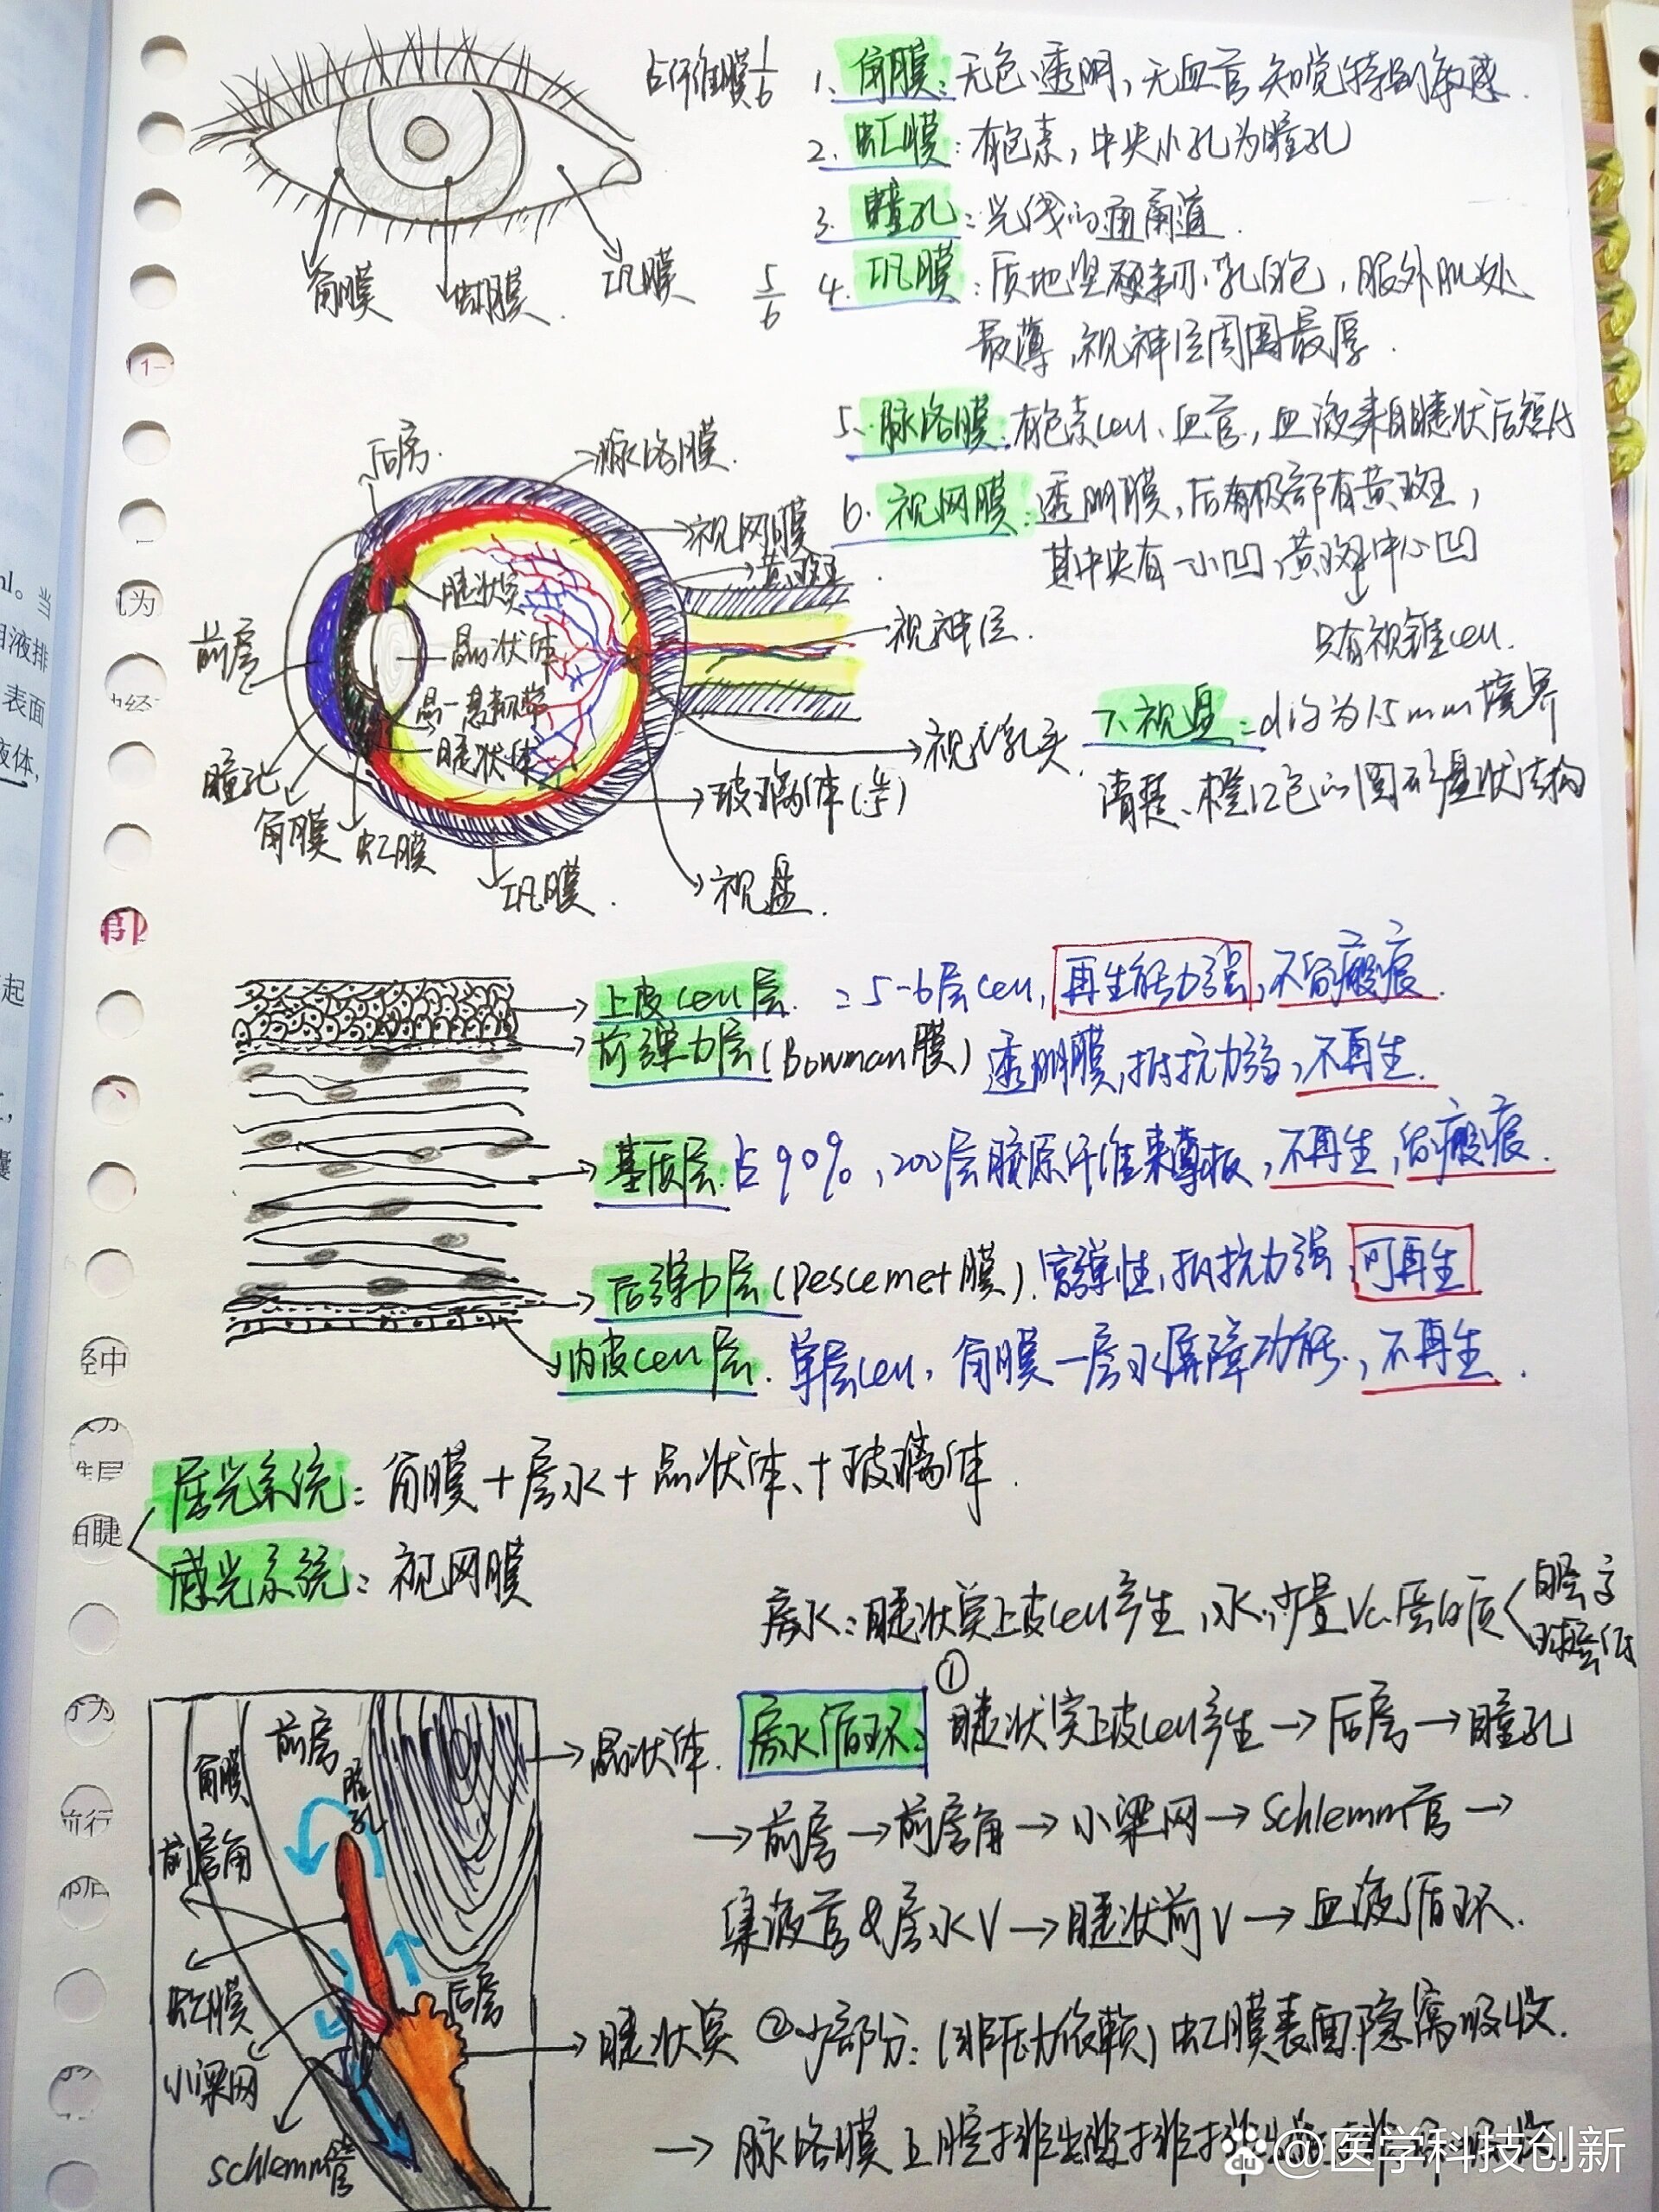 占纤维膜1/6 1、角膜：无色、透明，无血管 知觉特别敏感．
2、虹膜：有色素，中央小孔为瞳孔
3、瞳孔：光线的通道．
5/6 4、巩膜：质地坚硬柔韧、乳白色，眼外肌处
最薄，视神经周围最厚．
角膜 虹膜． 巩膜
5、脉络膜：有色素cell、血管，血液来自睫状后短A
6．视网膜：透明膜，后极部有黄斑，
其中央有一小凹，黄斑中心凹
只有视锥cell．
后房． 脉络膜．
视网膜
黄斑
睫状突
视神经．
前房
晶状体
晶-悬韧带
睫状体
瞳孔
角膜 虹膜
巩膜．
视N乳头
玻璃体
视盘．
7、视盘：di约为1.5mm境界
清楚、橙红色的圆形盘状结构
上皮cell层．：5-6层cell，再生能力强，不留瘢痕．
前弹力层（Bowman膜）透明膜，抵抗力弱，不再生．
基质层．占90%，200层胶原纤维束薄板，不再生，留瘢痕．
后弹力层（Descemet膜）．富弹性，抵抗力强，可再生
内皮cell层．单层cell，角膜-房水屏障功能，不再生．
屈光系统：角膜＋房水＋晶状体＋玻璃体．
感光系统：视网膜
房水：睫状突上皮cell产生，水，少量Vc．蛋白质
房水循环：①睫状突上皮cell产生→后房→瞳孔
→前房→前房角→小梁网→Schlemm管→
集液管&房水V→睫状前V→血液循环．
②少部分：（非压力依赖）虹膜表面隐窝吸收．
→脉络膜上腔
前房
角膜
瞳孔
前房角
晶状体．
虹膜
后房
小梁网
睫状突
Schlemm管
1-
几为
经中
日睫
亍为
流行
ml。当
液排
表面
液体，
起
Baidu @医学科技创新